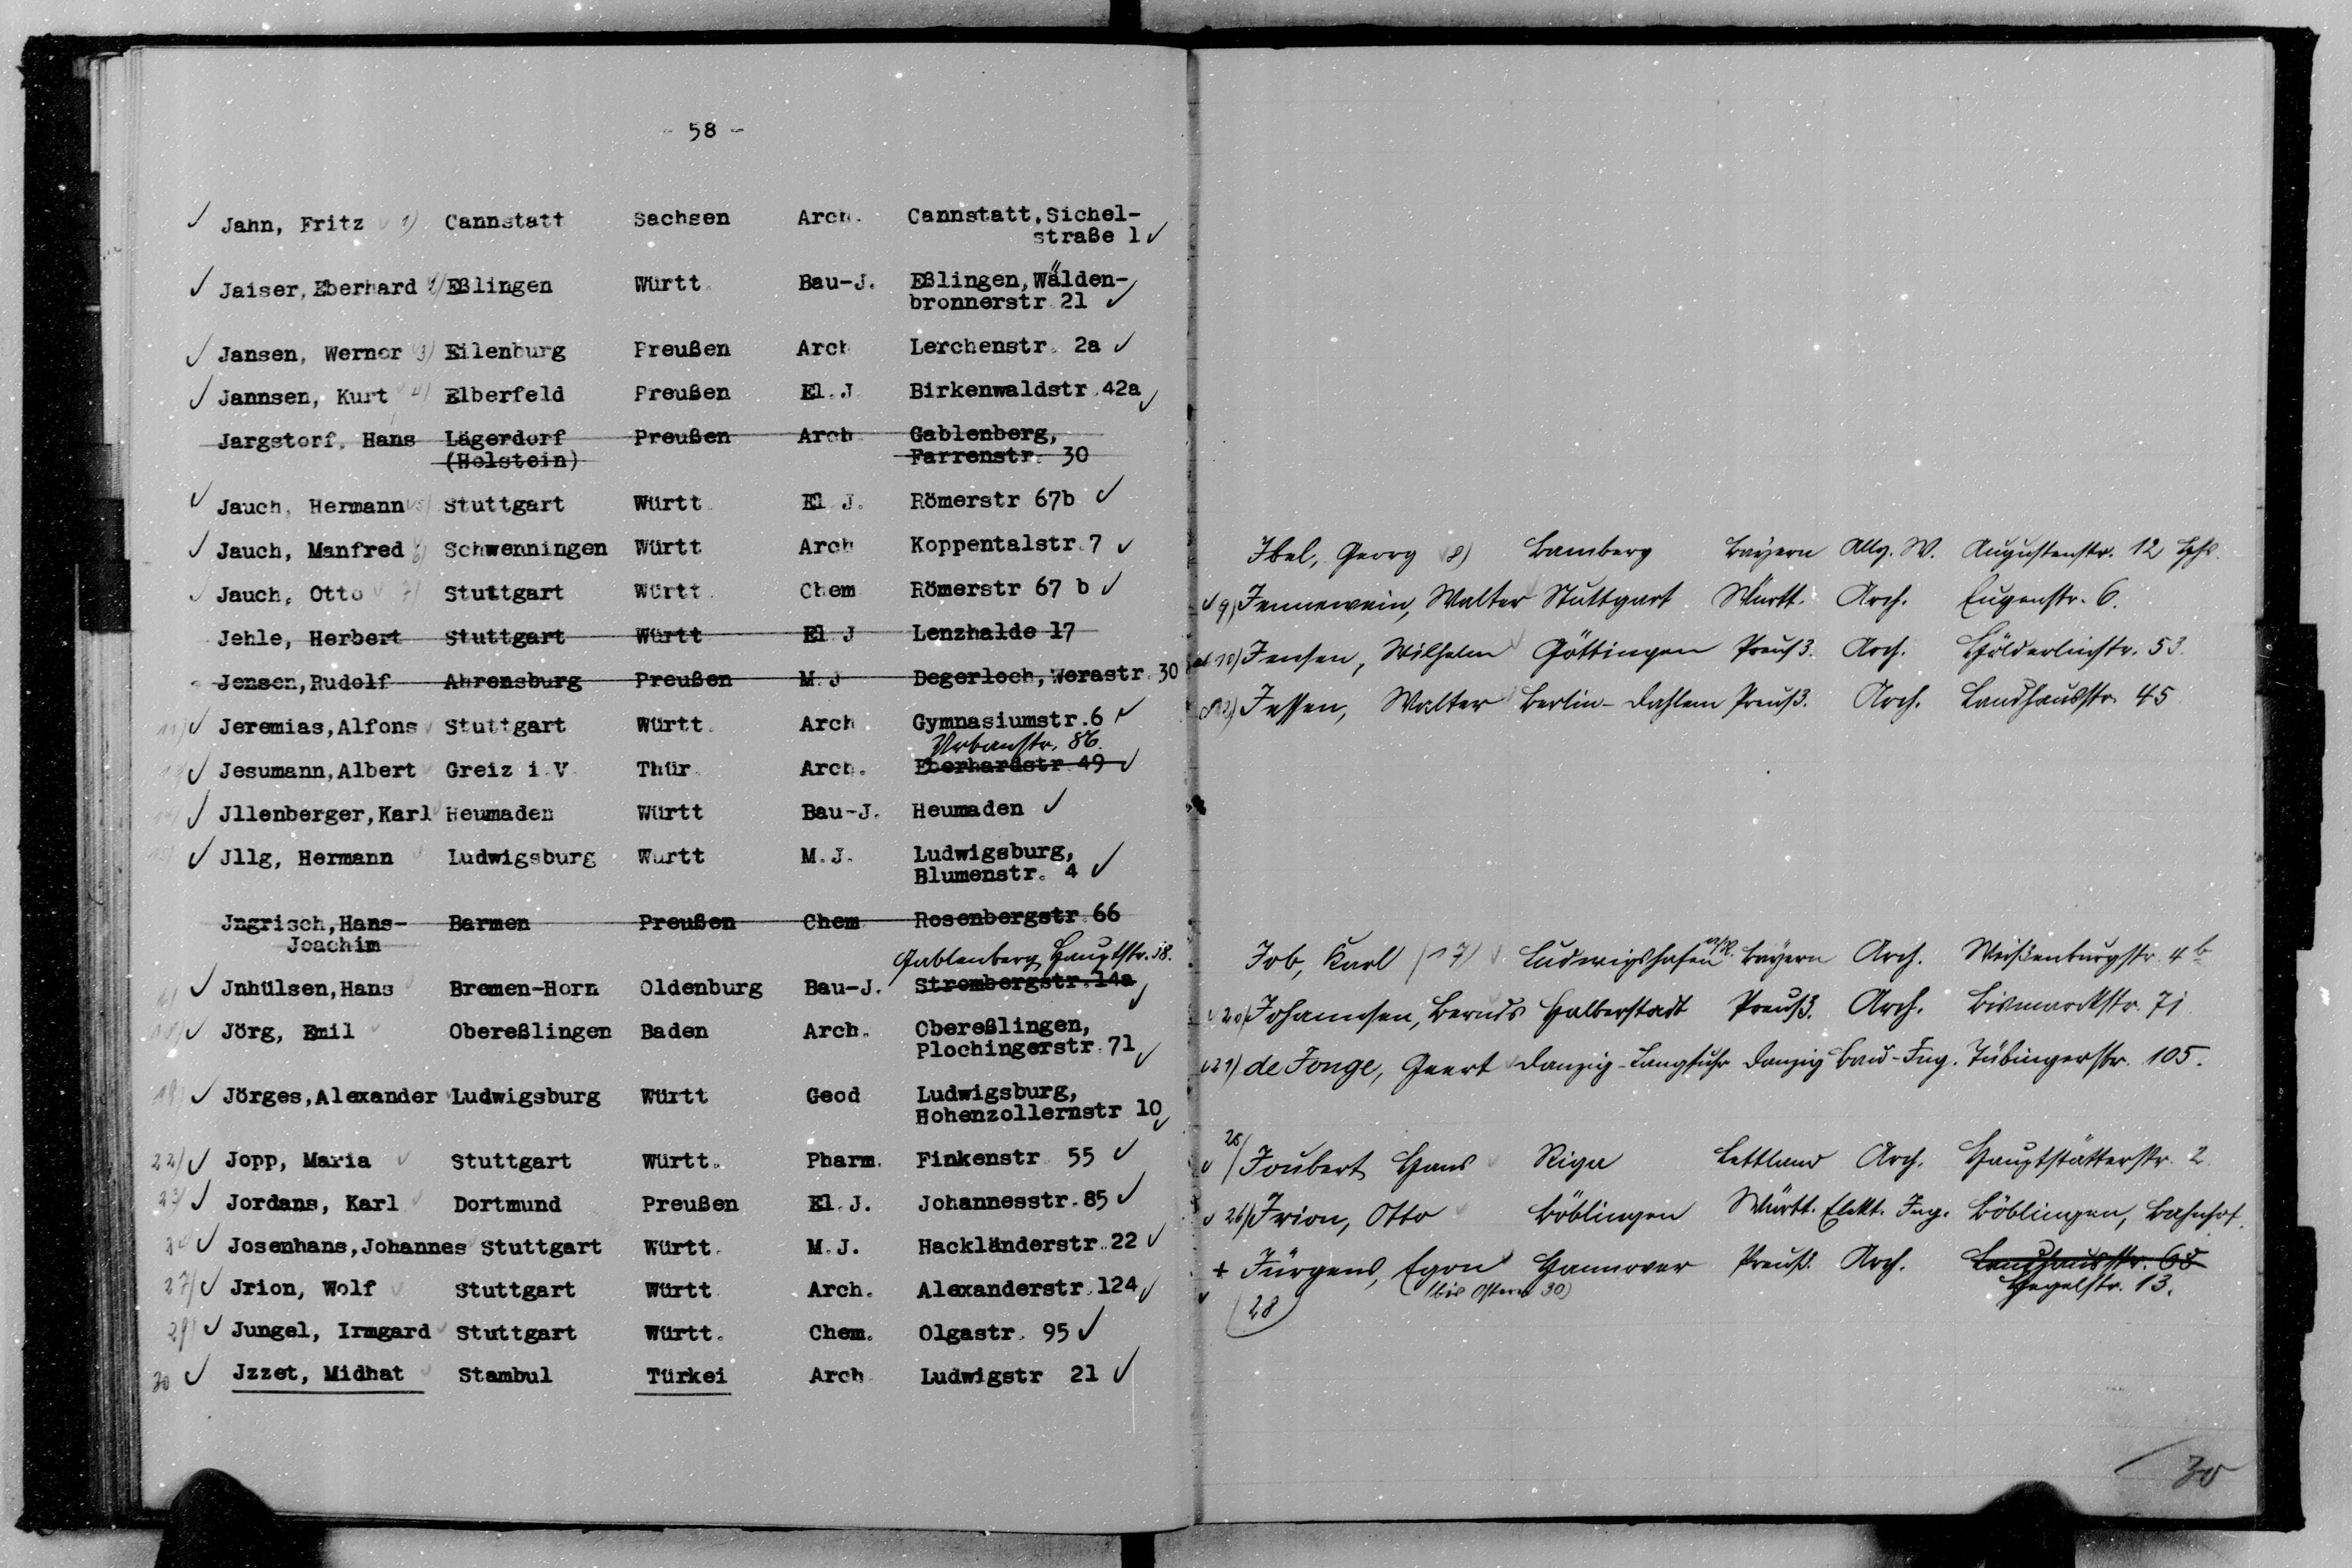 - 58 -
✓ Jahn, Fritz ✓ 1) Cannstatt Sachsen Arch. Cannstatt, Sichel-
straße 1 ✓
✓ Jaiser, Eberhard 2) Eßlingen Württ. Bau-J. Eßlingen, Wälden-
bronnerstr. 21 ✓
✓ Jansen, Werner 3) Eilenburg Preußen Arch Lerchenstr. 2a ✓
✓ Jannsen, Kurt ✓ 4) Elberfeld Preußen El. J. Birkenwaldstr. 42a ✓
Jargstorf, Hans Lägerdorf Preußen Arch Gablenberg,
(Holstein) Farrenstr. 30
✓ Jauch, Hermann ✓ 5) Stuttgart Württ. El. J. Römerstr 67b ✓
✓ Jauch, Manfred 6) Schwenningen Württ Arch Koppentalstr. 7 ✓
✓ Jauch, Otto ✓ 7) Stuttgart Württ. Chem Römerstr 67 b ✓
Jehle, Herbert Stuttgart Württ El. J Lenzhalde 17
Jensen, Rudolf Ahrensburg Preußen M. J Degerloch, Werastr. 30
11) ✓ Jeremias, Alfons ✓ Stuttgart Württ. Arch Gymnasiumstr. 6 ✓
Urbanstr. 86.
✓ Jesumann, Albert ✓ Greiz i. V. Thür. Arch. Eberhardstr. 49 ✓
✓ Jllenberger, Karl ✓ Heumaden Württ Bau-J. Heumaden ✓
15) ✓ Jllg, Hermann ✓ Ludwigsburg Württ M. J. Ludwigsburg,
Blumenstr. 4 ✓
Jngrisch, Hans- Barmen Preußen Chem Rosenbergstr. 66
Joachim
Gablenberg Hauptstr. 38.
✓ Jnhülsen, Hans ✓ Bremen-Horn Oldenburg Bau-J. Strombergstr. 14a ✓
18) ✓ Jörg, Emil ✓ Obereßlingen Baden Arch. Obereßlingen,
Plochingerstr. 71 ✓
19) ✓ Jörges, Alexander ✓ Ludwigsburg Württ Geod Ludwigsburg,
Hohenzollernstr 10 ✓
22) ✓ Jopp, Maria ✓ Stuttgart Württ. Pharm. Finkenstr 55 ✓
23) ✓ Jordans, Karl ✓ Dortmund Preußen El. J. Johannesstr. 85 ✓
24) ✓ Josenhans, Johannes Stuttgart Württ. M. J. Hackländerstr. 22 ✓
27) ✓ Jrion, Wolf ✓ Stuttgart Württ Arch. Alexanderstr. 124 ✓
29) ✓ Jungel, Irmgard ✓ Stuttgart Württ. Chem. Olgastr. 95 ✓
30 ✓ Jzzet, Midhat ✓ Stambul Türkei Arch Ludwigstr 21 ✓
Ibel, Georg ✓ 8) Bamberg Bayern Allg. W. Augustenstr. 12
✓ 9) Jennewein, Walter Stuttgart Württ. Arch. Eugenstr. 6.
✓ 10) Jensen, Wilhelm ✓ Göttingen Preuß. Arch. Hölderlinstr. 53.
✓ 12) Jessen, Walter Berlin-Dahlem Preuß. Arch. Landhausstr. 45
Job, Karl (17) ✓ Ludwigshafen a/Rh. Bayern Arch. Weißenburgstr. 4 b
✓ 20) Johannsen, Bernd Halberstadt Preuß. Arch. Bismarckstr. 71
✓ 21) de Jonge, Geert ✓ Danzig-Langfuhr Danzig Bau-Ing. Tübingerstr. 105.
✓ 25) Joubert Hans ✓ Riga Lettland Arch. Hauptstätterstr. 2.
✓ 26) Irion, Otto ✓ Böblingen Württ. Elekt. Ing. Böblingen, Bahnhof.
+ Jürgens, Egon ✓ Hannover Preuß. Arch. Landhausstr. 68
✓ (28) (bis Ostern 30) Hegelstr. 13.
30